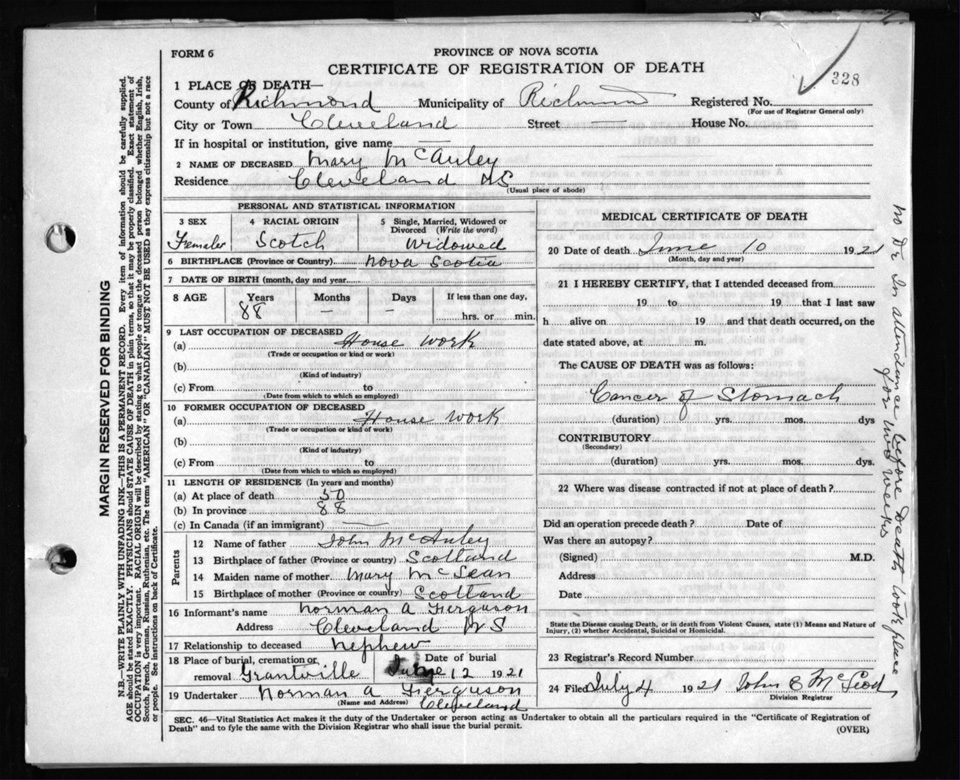 FORM 6
PROVINCE OF NOVA SCOTIA
CERTIFICATE OF REGISTRATION OF DEATH
328
1 PLACE OF DEATH—
County of Richmond Municipality of Richmond Registered No.
(For use of Registrar General only)
City or Town Cleveland Street — House No.
If in hospital or institution, give name —
2 NAME OF DECEASED Mary McAuley
Residence Cleveland NS
(Usual place of abode)
PERSONAL AND STATISTICAL INFORMATION
3 SEX 4 RACIAL ORIGIN 5 Single, Married, Widowed or Divorced (Write the word)
Female Scotch Widowed
6 BIRTHPLACE (Province or Country) Nova Scotia
7 DATE OF BIRTH (month, day and year)
8 AGE Years Months Days If less than one day,
88 — — hrs. or min.
9 LAST OCCUPATION OF DECEASED
(a) House work
(Trade or occupation or kind or work)
(b)
(Kind of industry)
(c) From to
(Date from which to which so employed)
10 FORMER OCCUPATION OF DECEASED
(a) House work
(Trade or occupation or kind of work)
(b)
(Kind of industry)
(c) From to
(Date from which to which so employed)
11 LENGTH OF RESIDENCE (In years and months)
(a) At place of death 50
(b) In province 88
(c) In Canada (if an immigrant) —
Parents
12 Name of father John McAuley
13 Birthplace of father (Province or country) Scotland
14 Maiden name of mother Mary McLean
15 Birthplace of mother (Province or country) Scotland
16 Informant's name Norman A Ferguson
Address Cleveland NS
17 Relationship to deceased nephew
18 Place of burial, cremation or removal Grantville Date of burial June 12 1921
19 Undertaker Norman A Ferguson
(Name and Address) Cleveland
MEDICAL CERTIFICATE OF DEATH
20 Date of death June 10 1921
(Month, day and year)
21 I HEREBY CERTIFY, that I attended deceased from
19 to 19 that I last saw
h alive on 19 and that death occurred, on
date stated above, at m.
The CAUSE OF DEATH was as follows:
Cancer of Stomach
(duration) yrs. mos. dys
CONTRIBUTORY
(Secondary)
(duration) yrs. mos. dys.
22 Where was disease contracted if not at place of death?
Did an operation precede death? Date of
Was there an autopsy?
(Signed) M.D.
Address
Date
State the Disease causing Death, or in death from Violent Causes, state (1) Means and Nature of
Injury, (2) whether Accidental, Suicidal or Homicidal.
23 Registrar's Record Number
24 Filed July 4 1921 John C McLeod
Division Registrar
SEC. 46—Vital Statistics Act makes it the duty of the Undertaker or person acting as Undertaker to obtain all the particulars required in the "Certificate of Registration of
Death" and to fyle the same with the Division Registrar who shall issue the burial permit.
(OVER)
MARGIN RESERVED FOR BINDING
N.B.—WRITE PLAINLY WITH UNFADING INK—THIS IS A PERMANENT RECORD. Every item of information should be carefully supplied.
AGE should be stated EXACTLY. PHYSICIANS should STATE CAUSE OF DEATH in plain terms, so that it may be properly classified. Exact statement of
OCCUPATION is very important. RACIAL ORIGIN will be described by stating to what people or tongue the deceased person belonged whether English, Irish,
Scotch, French, German, Russian, Ruthenian, etc. The terms "AMERICAN" OR "CANADIAN" MUST NOT BE USED as they express citizenship but not a race
or people. See instructions on back of Certificate.
no Dr in attendance before Death took place
for weeks